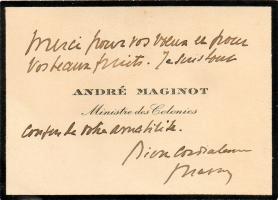 Merci pour vos vœux et pour
vos beaux fruits. Je suis tout
ANDRÉ MAGINOT
Ministre des Colonies
confus de votre amabilité.
Bien cordialement